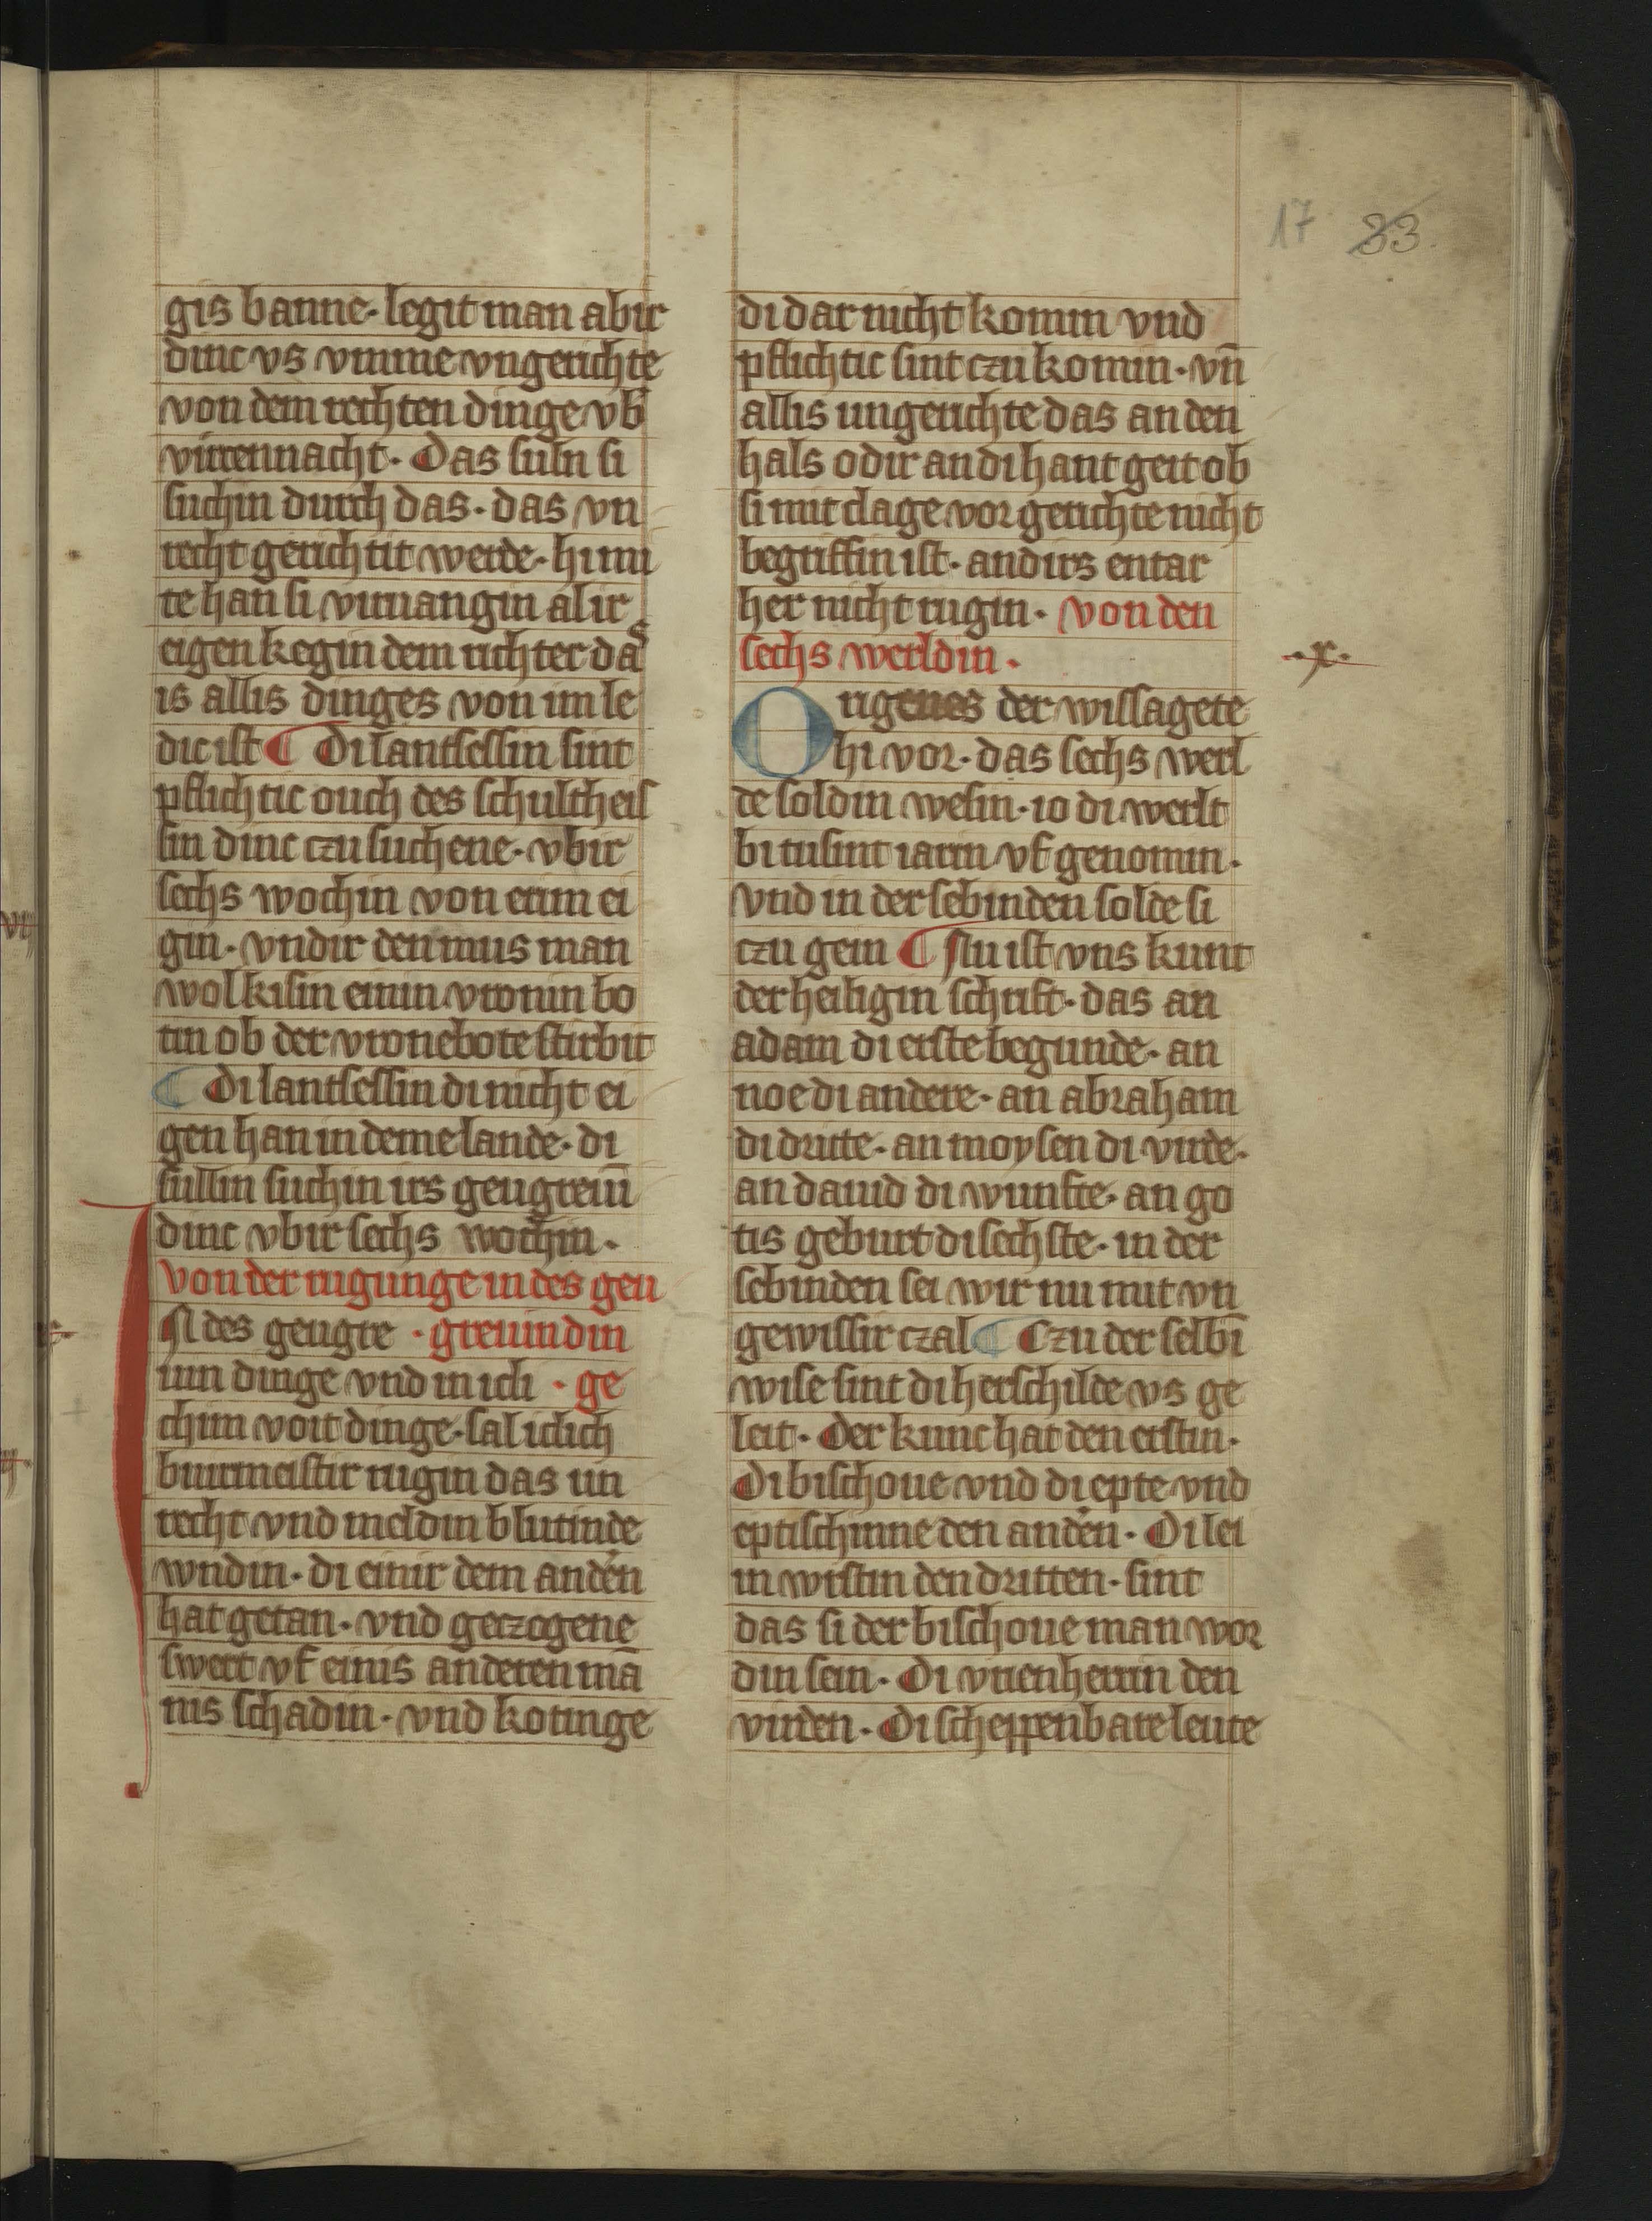 17 33.
gis banne· legit man abir
dinc vs vmme vngerichte
von dem rechten dinge vb̕
virrennacht· Das suln si
suchin durch das· das vn
recht gerichtit werde· hi mi
te han si viruangin al ir
eigen kegin dem richter das
is allis dinges von im le
dic ist ¶ Di lantsessin sint
pflichtic ouch des schultheis
sin dinc czu suchene· vbir
sechs wochin von erim ei
gin· vndir den mus man
wol kisin einin vronin bo
tin ob der vronebote stirbit
¶ Di lantsessin di nicht ei
gen han in deme lande· di
sullin suchin irs geugreuī
dinc vbir sechs wochin·
von der rugunge in des geu
IN des geugre · greuin din
uin dinge vnd in icli · ge
chim voit dinge· sal iclich
burmeistir rugin das un
recht vnd meldin blutinde
wndin· di einir dem anden
hat getan· vnd geczogene
swert vf einis anderen mā
nis schadin· vnd kotinge
di dar nicht komin vnd
pflichtic sint czu komin· vn̄
allis ungerichte das an den
hals odir an di hant geit ob
si mit clage vor gerichte nicht
begriffin ist· andirs entar
her nicht rugin· von den
sechs werldin·
·x·
Origenes der wissagete
hi vor· das sechs werl
de soldin wesin· io di werlt
bi tusint iarin vf genomin·
vnd in der sebinden solde si
czu gein ¶ Nu ist vns kunt
der heiligin schrift· das an
adam di erste begunde· an
noe di andere· an abraham
di dritte· an moysen di virde·
an dauid di wunfte· an go
tis geburt di sechste· in der
sebinden sei wir nu mit vn
gewissir czal ¶ Czu der selbī
wise sint di herschilde vs ge
leit· Der kunc hat den erstin·
Di bischoue vnd di epte vnd
eptischinne den anden· Di lei
in wrstin den dritten· sint
das si der bischoue man wor
din sein· Di vrien herrin den
virden· Di scheppenbare leute